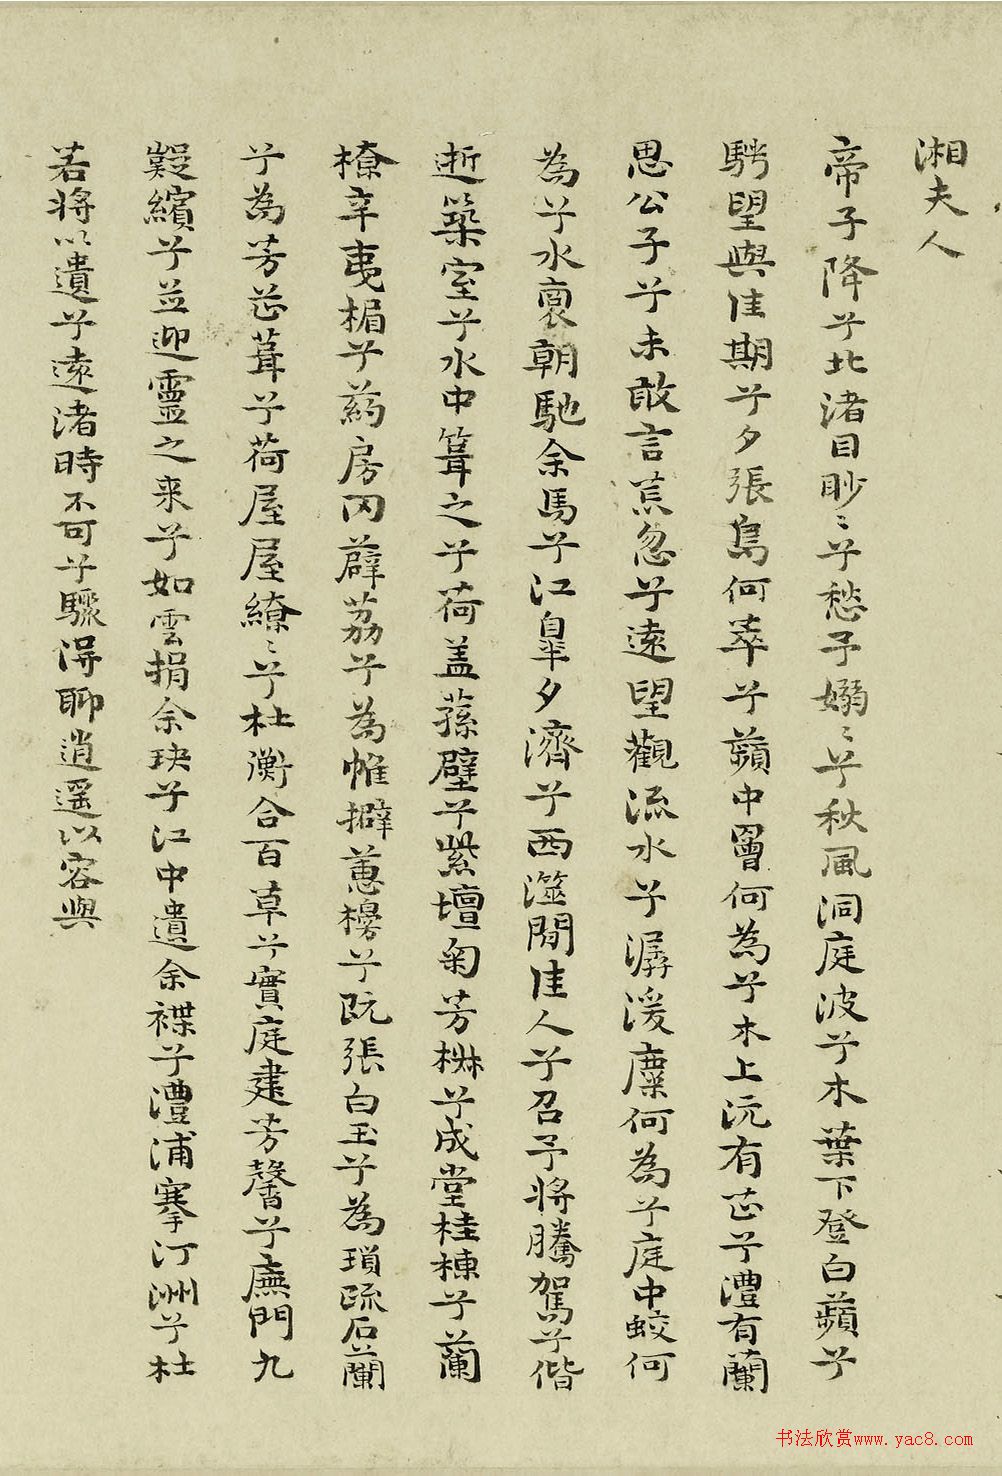 湘夫人
帝子降兮北渚目眇〻兮愁予嫋〻兮秋風洞庭波兮木葉下登白蘋兮
騁望與佳期兮夕張鳥何萃兮蘋中罾何為兮木上沅有芷兮澧有蘭
思公子兮未敢言荒忽兮遠望觀流水兮潺湲麋何為兮庭中蛟何
為兮水裔朝馳余馬兮江皐夕濟兮西澨聞佳人兮召予將騰駕兮偕
逝築室兮水中葺之兮荷盖蓀壁兮紫壇菊芳椒兮成堂桂棟兮蘭
橑辛夷楣兮葯房罔薜荔兮為帷擗蕙櫋兮既張白玉兮為瑣疏石蘭
兮為芳芷葺兮荷屋屋繚〻兮杜衡合百草兮實庭建芳馨兮廡門九
嶷繽兮並迎靈之来兮如雲捐余玦兮江中遺余褋兮澧浦搴汀洲兮杜
若將以遺兮遠渚時不可兮驟得聊逍遥以容與
书法欣赏www.yac8.com